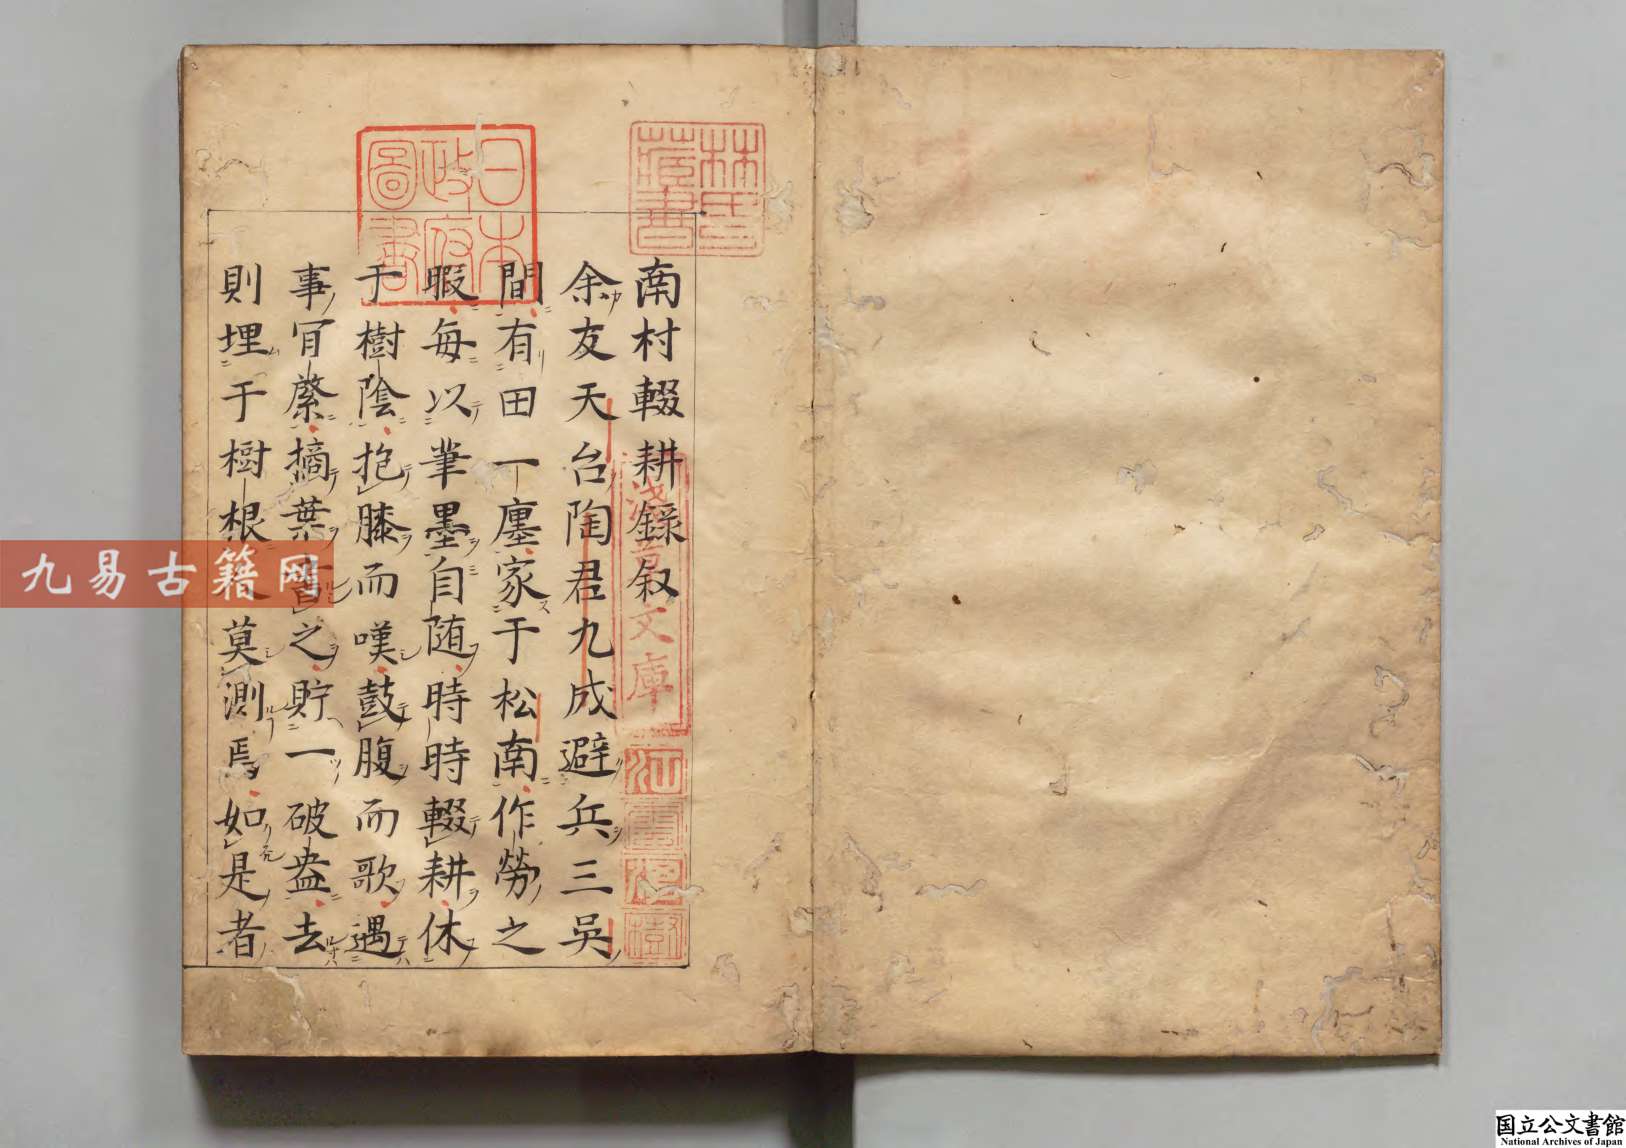 南村輟耕錄叙
余友天台陶君九成避兵三吳
間有田一廛家于松南作勞之
暇每以筆墨自随時時輟耕休
于樹陰抱膝而嘆鼓腹而歌遇
事肎綮摘葉書之貯一破盎去
則埋于樹根人莫測焉如是者
林氏藏書
日本政府圖書
淺草文庫
江雲渭樹
九易古籍网
国立公文書館
National Archives of Japan